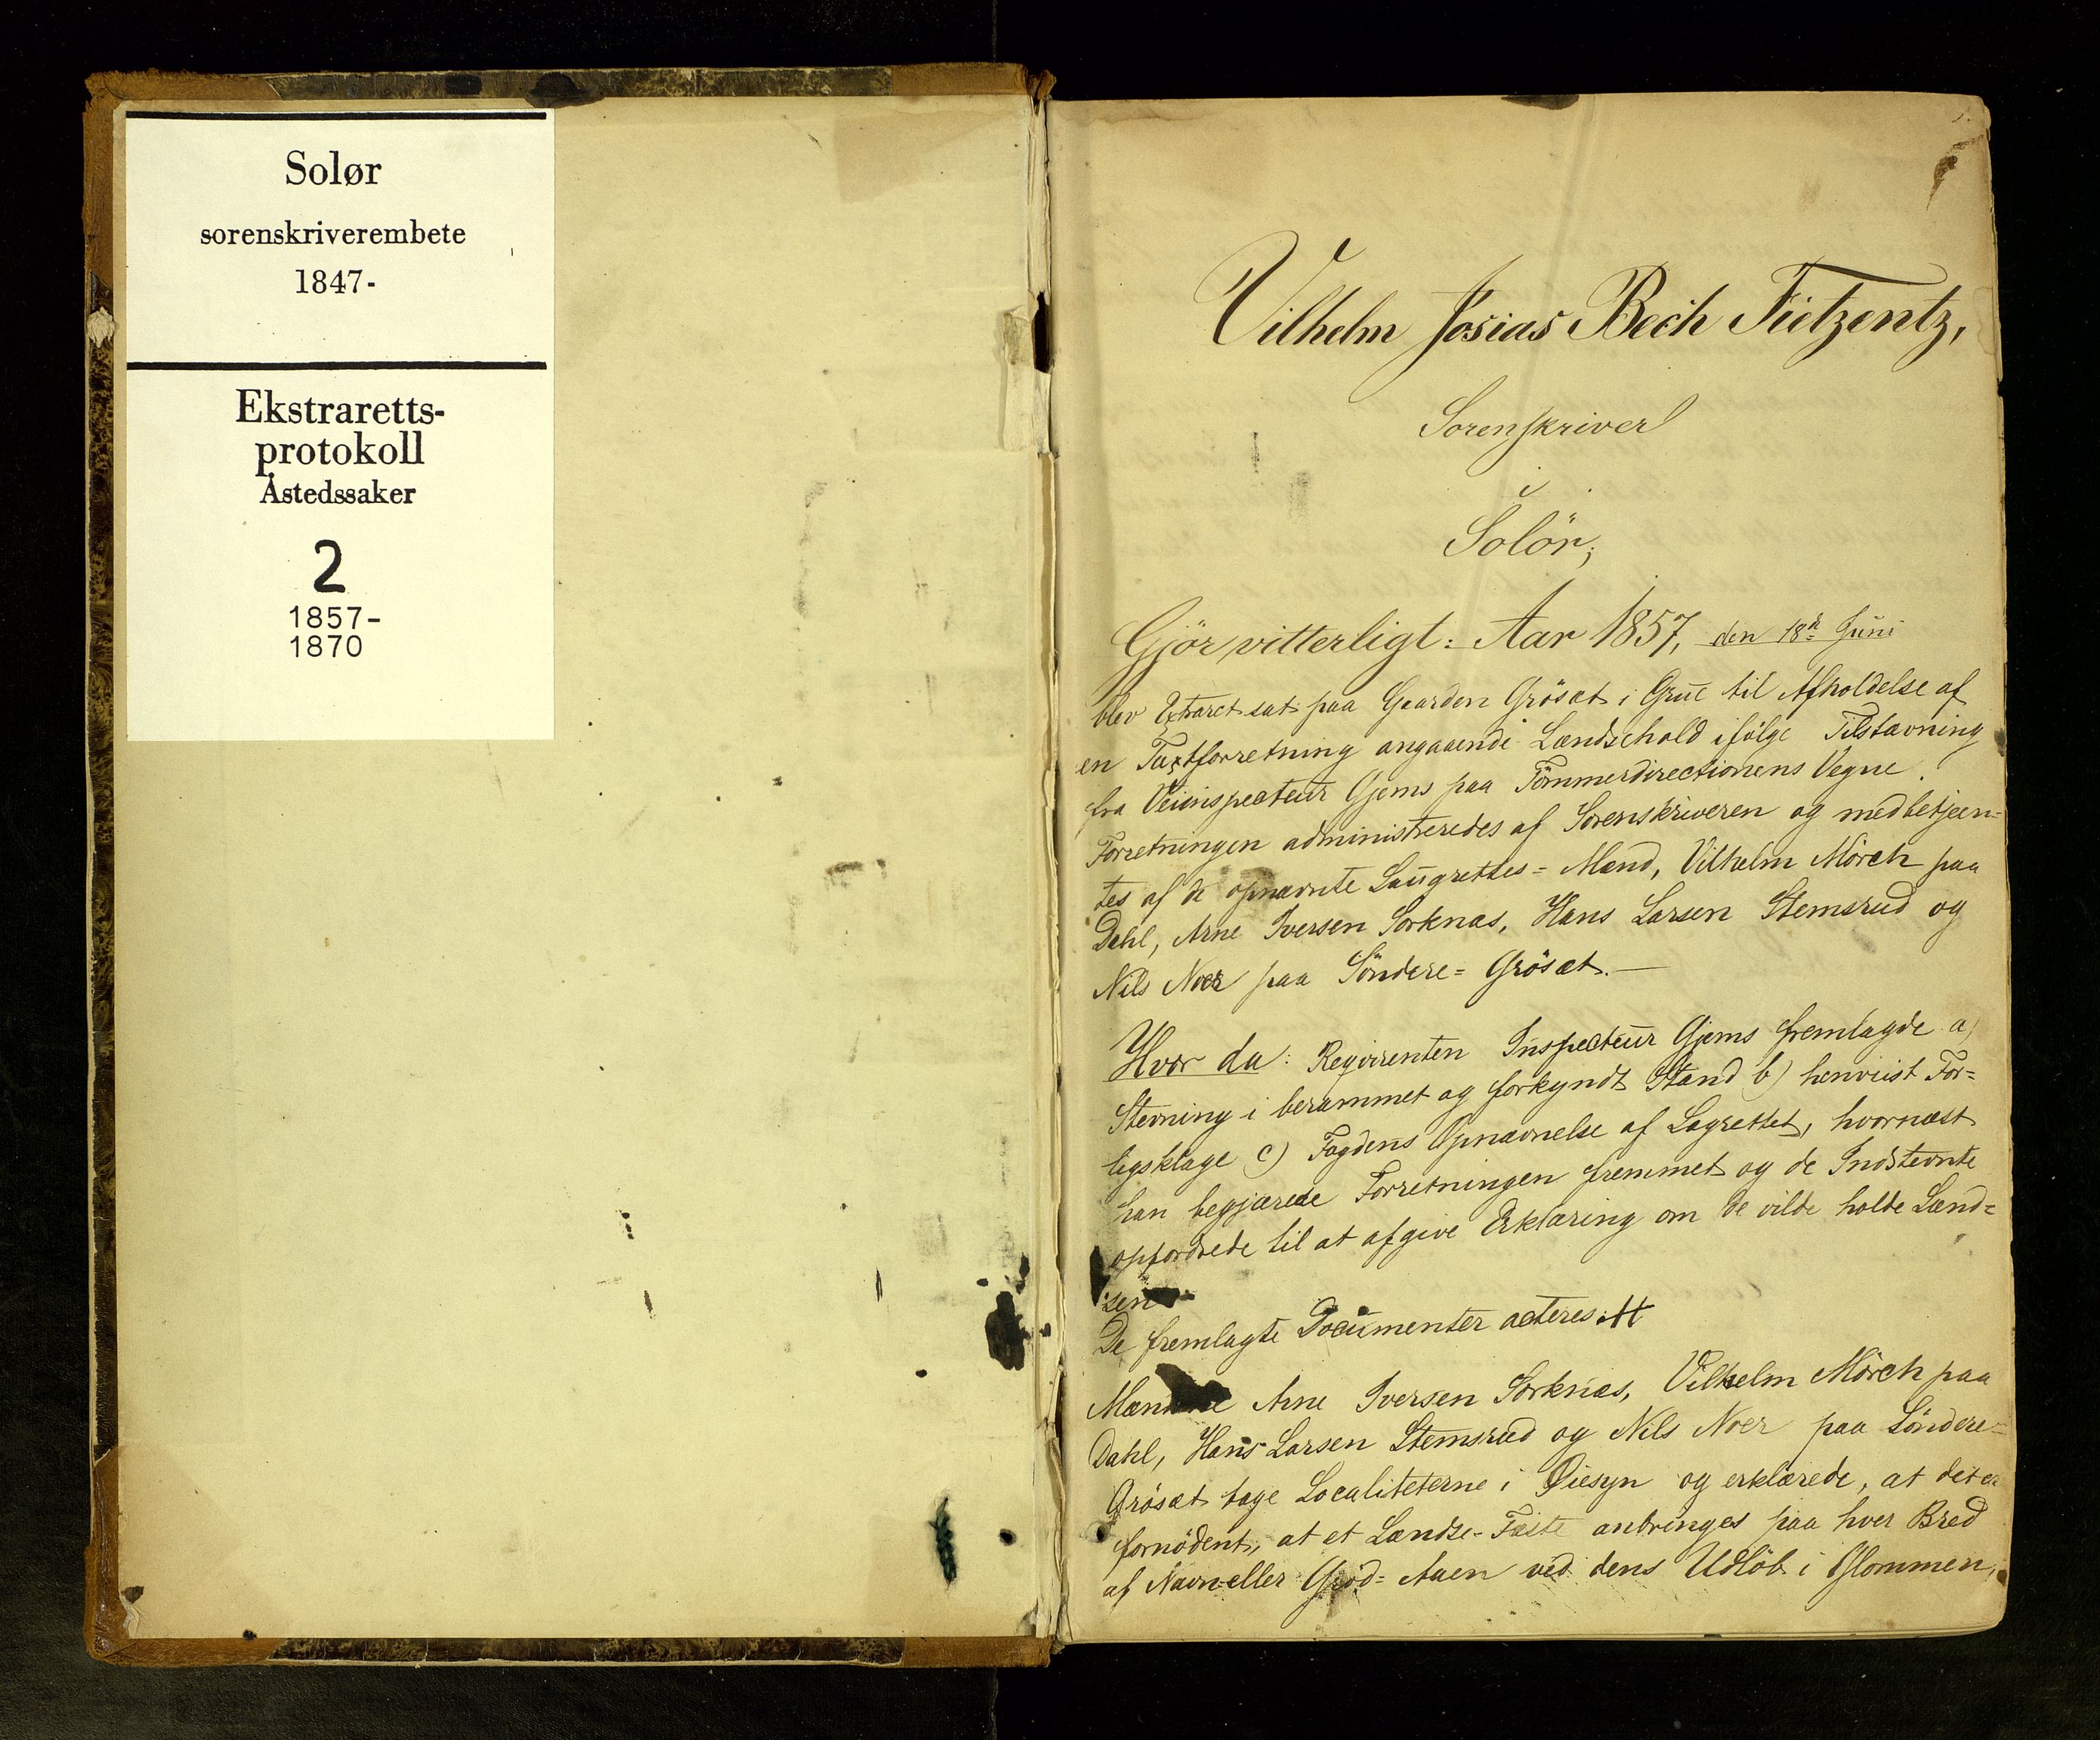 Solør
sorenskriverembete
1847-
Ekstraretts-
protokoll
Åstedssaker
2
1857-
1870
Vilhelm Josias Bech Tützentz,
Sorenskriver
i
Solör;
Gjör vitterligt: Aar 1857, den 18de Juni
blev Extraret sat paa Gaarden Grösæt i Grue til Afholdelse af
en Taxtforretning angaaende Lændsehold ifölge Tilstævning
fra Veiinspecteur Gjems paa Tömmerdirectionens Vegne.
Forretningen administreredes af Sorenskriveren og medbetjeen-
tes af de opnævnte Laugrettes-Mænd, Vilhelm Mörch paa
Dahl, Arne Iversen Sorknæs, Hans Larsen Stemsrud og
Nils Noer paa Söndere-Grösæt.
Hvor da: Reqvirenten Inspecteur Gjems fremlagde a)
Stevning i berammet og forkyndt Stand b) henviist For-
ligsklage c) Fogdens Opnævnelse af Lagrettet, hvornæst
han begjærede Forretningen fremmet og de Indstevnte
opfordrede til at afgive Erklæring om de vilde holde Lænd-
sen
De fremlagte Documenter acteres
Mændene Arne Iversen Sorknæs, Vilhelm Mörch paa
Dahl, Hans Larsen Stemsrud og Nils Noer paa Söndere-
Grösæt toge Localiteterne i Öiesyn og erklærede, at det er
fornödent, at et Lændse-Fæste anbringes paa hver Bred
af Navn eller Aaen ved dens Udlöb i Glommen,